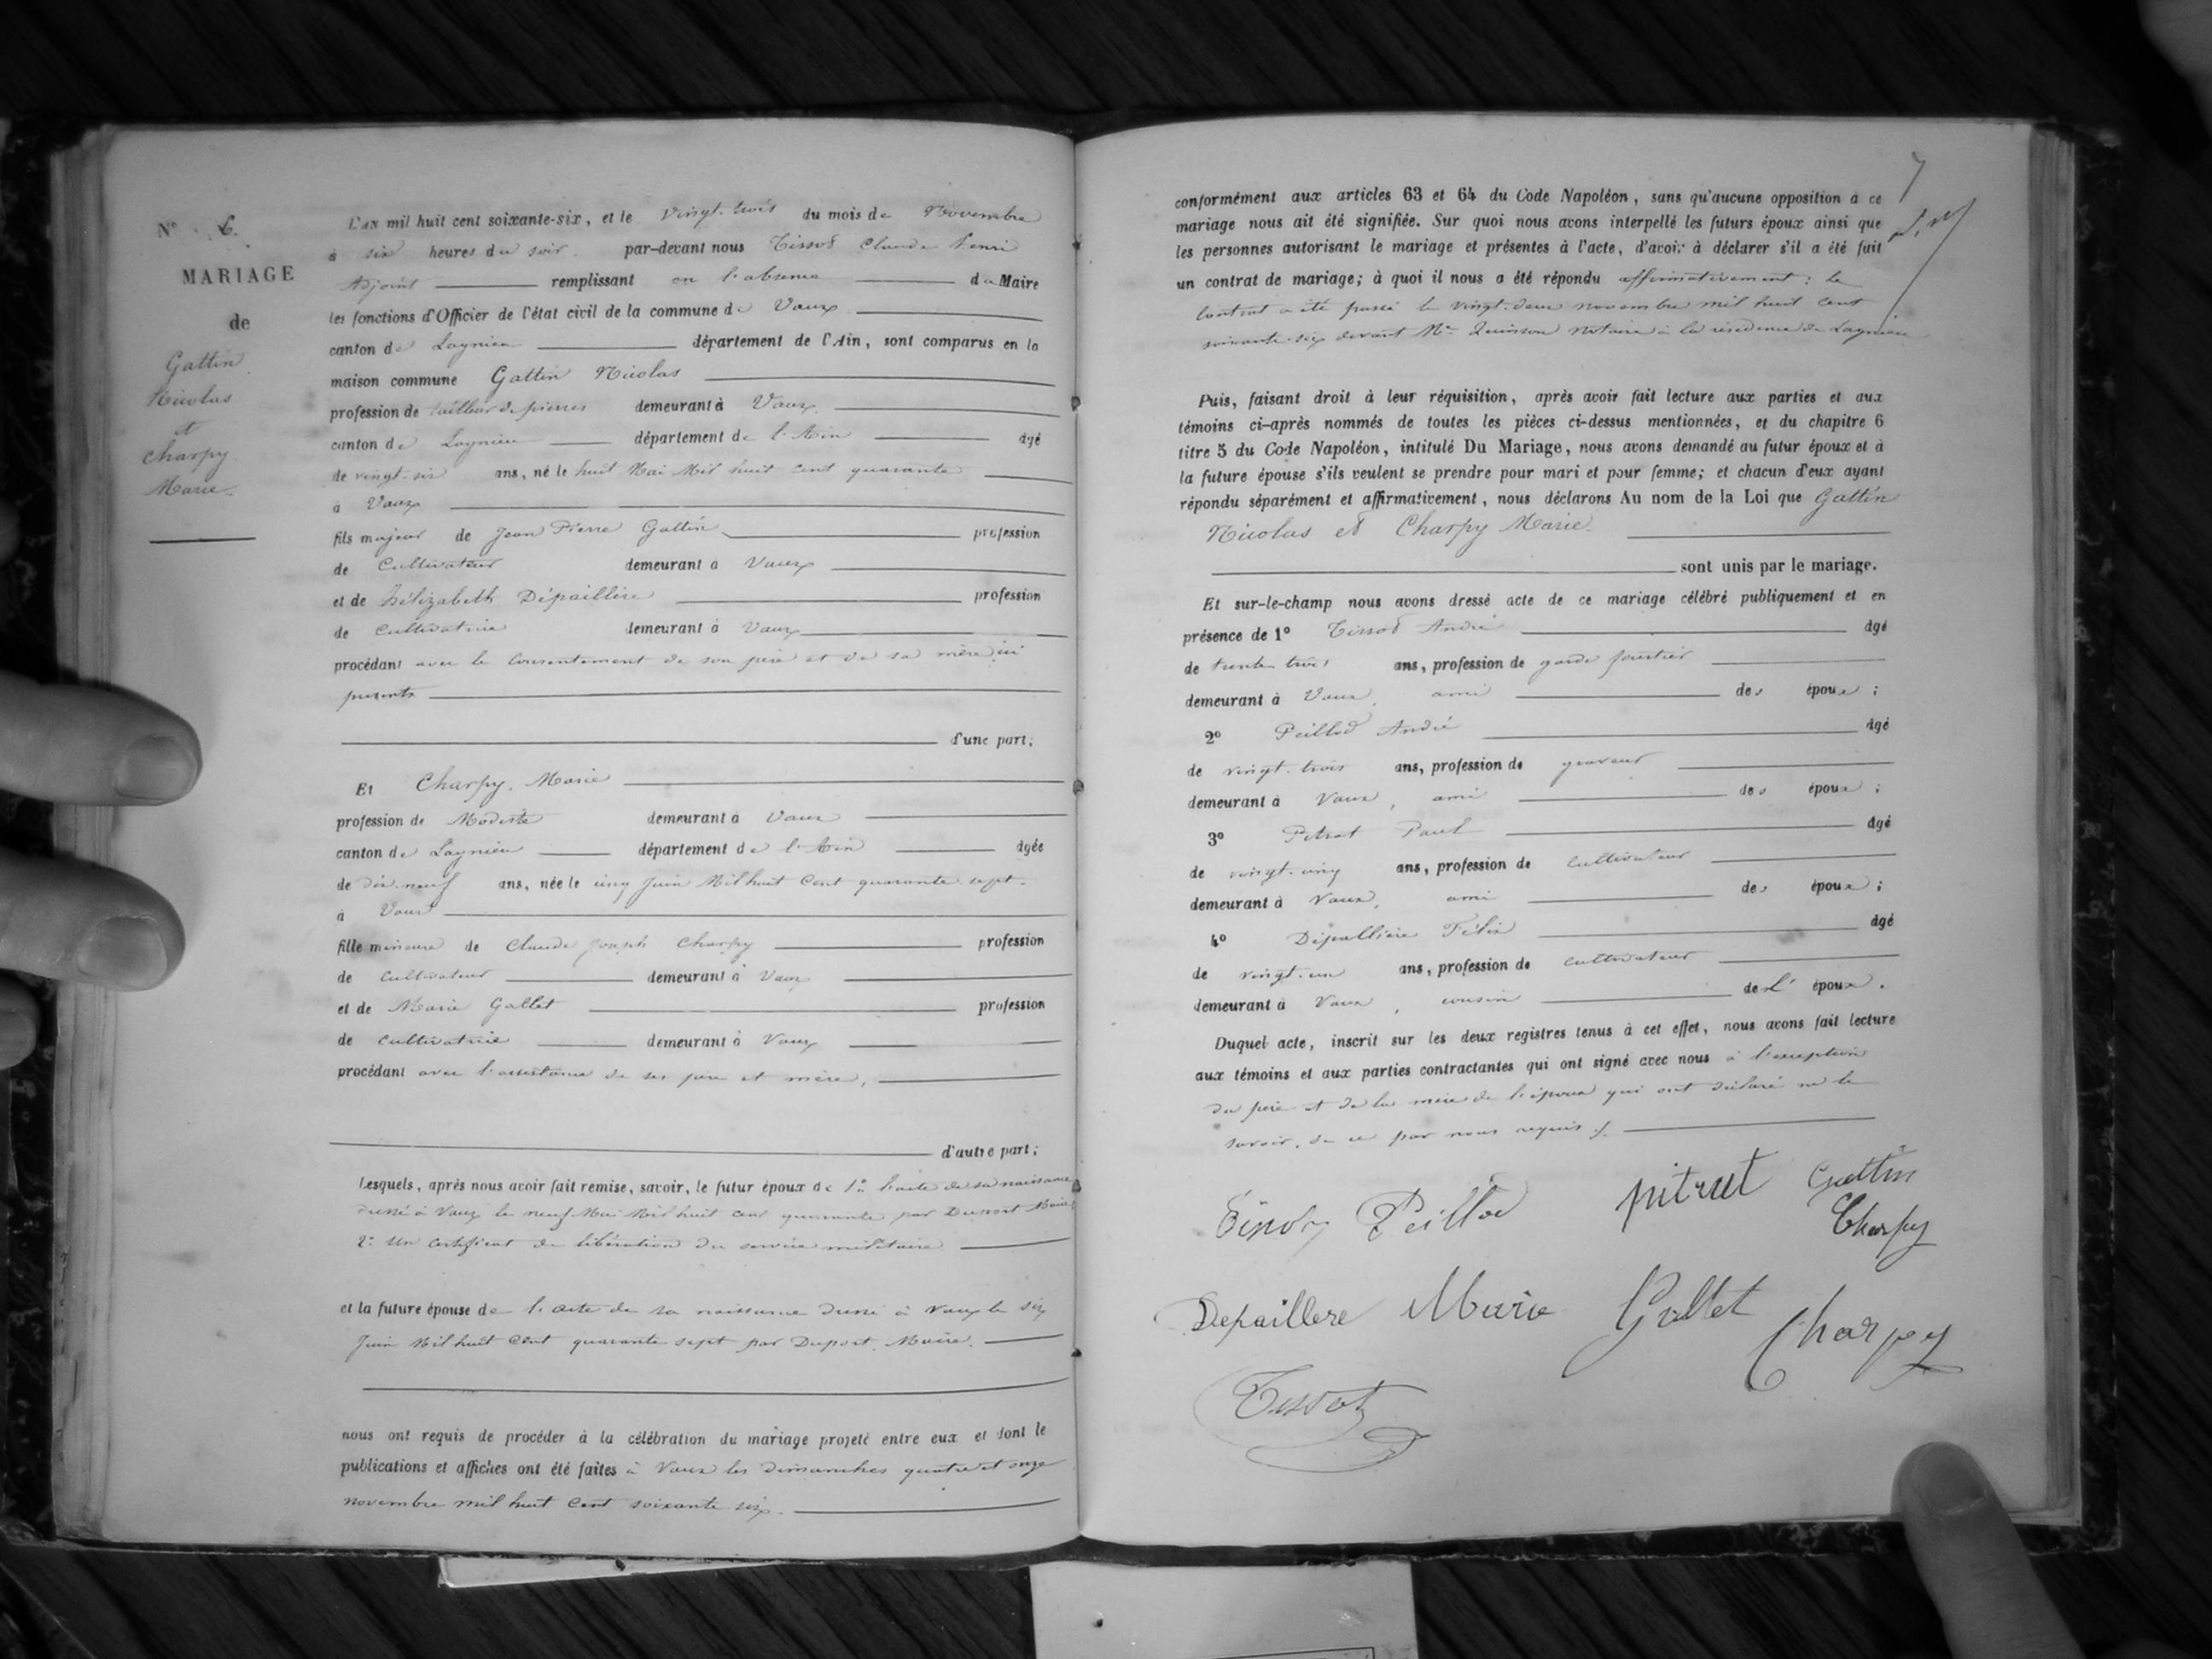 N° 6.
MARIAGE
de
Gattin
Nicolas
et
Charpy
Marie
L'AN mil huit cent soixante-six, et le vingt-trois du mois de Novembre
à six heures du soir. par-devant nous Tissot Claude Henri
Adjoint remplissant en l'absence du Maire
les fonctions d'Officier de l'état civil de la commune de Vaux
canton de Lagnieu département de l'Ain, sont comparus en la
maison commune Gattin Nicolas
profession de tailleur de pierres demeurant à Vaux
canton de Lagnieu département de l'Ain âgé
de vingt-six ans, né le huit Mai Mil huit cent quarante
à Vaux
fils majeur de Jean Pierre Gattin profession
de Cultivateur demeurant à Vaux
et de Hélizabeth Dépaillère profession
de Cultivatrice demeurant à Vaux
procédant avec le consentement de son père et de sa mère ici
présents
d'une part;
Et Charpy, Marie
profession de Modiste demeurant à Vaux
canton de Lagnieu département de l'Ain âgée
de dix-neuf ans, née le cinq Juin Mil huit Cent quarante sept.
à Vaux
fille mineure de Claude Joseph Charpy profession
de Cultivateur demeurant à Vaux
et de Marie Gallet profession
de Cultivatrice demeurant à Vaux
procédant avec l'assistance de ses père et mère,
d'autre part;
Lesquels, après nous avoir fait remise, savoir, le futur époux de 1° l'acte de sa naissance
dressé à Vaux le neuf Mai Mil huit cent quarante par Duport Maire
2° Un certificat de libération du service militaire
et la future épouse de l'acte de sa naissance dressé à Vaux le six
Juin Mil huit Cent quarante sept par Duport, Maire.
nous ont requis de procéder à la célébration du mariage projeté entre eux et dont le
publications et affiches ont été faites à Vaux les dimanches quatre et onze
novembre mil huit Cent soixante six.
7
conformément aux articles 63 et 64 du Code Napoléon, sans qu'aucune opposition à ce
mariage nous ait été signifiée. Sur quoi nous avons interpellé les futurs époux ainsi que
les personnes autorisant le mariage et présentes à l'acte, d'avoir à déclarer s'il a été fait
un contrat de mariage; à quoi il nous a été répondu affirmativement: le
Contrat a été passé le vingt-deux novembre mil huit Cent
soixante-six devant Me Quinson Notaire à la résidence de Lagnieu
Puis, faisant droit à leur réquisition, après avoir fait lecture aux parties et aux
témoins ci-après nommés de toutes les pièces ci-dessus mentionnées, et du chapitre 6
titre 5 du Code Napoléon, intitulé Du Mariage, nous avons demandé au futur époux et à
la future épouse s'ils veulent se prendre pour mari et pour femme; et chacun d'eux ayant
répondu séparément et affirmativement, nous déclarons Au nom de la Loi que Gattin
Nicolas et Charpy Marie
sont unis par le mariage.
Et sur-le-champ nous avons dressé acte de ce mariage célébré publiquement et en
présence de 1° Tissot André âgé
de trente trois ans, profession de garde forestier
demeurant à Vaux, ami des époux;
2° Peillod André âgé
de vingt-trois ans, profession de graveur
demeurant à Vaux, ami des époux;
3° Pitrat Paul âgé
de vingt-cinq ans, profession de Cultivateur
demeurant à Vaux, ami des époux;
4° Dépallière Félix âgé
de vingt-un ans, profession de Cultivateur
demeurant à Vaux, cousin de l'époux.
Duquel acte, inscrit sur les deux registres tenus à cet effet, nous avons fait lecture
aux témoins et aux parties contractantes qui ont signé avec nous à l'exception
du père et de la mère de l'époux qui ont déclaré ne le
savoir, de ce par nous requis ./.
Peillod pitrat Gattin
Charpy
Depaillere Marie Gallet Charpy
Tissot